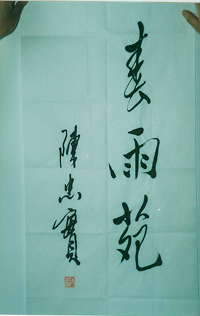 春雨苑
陳忠實